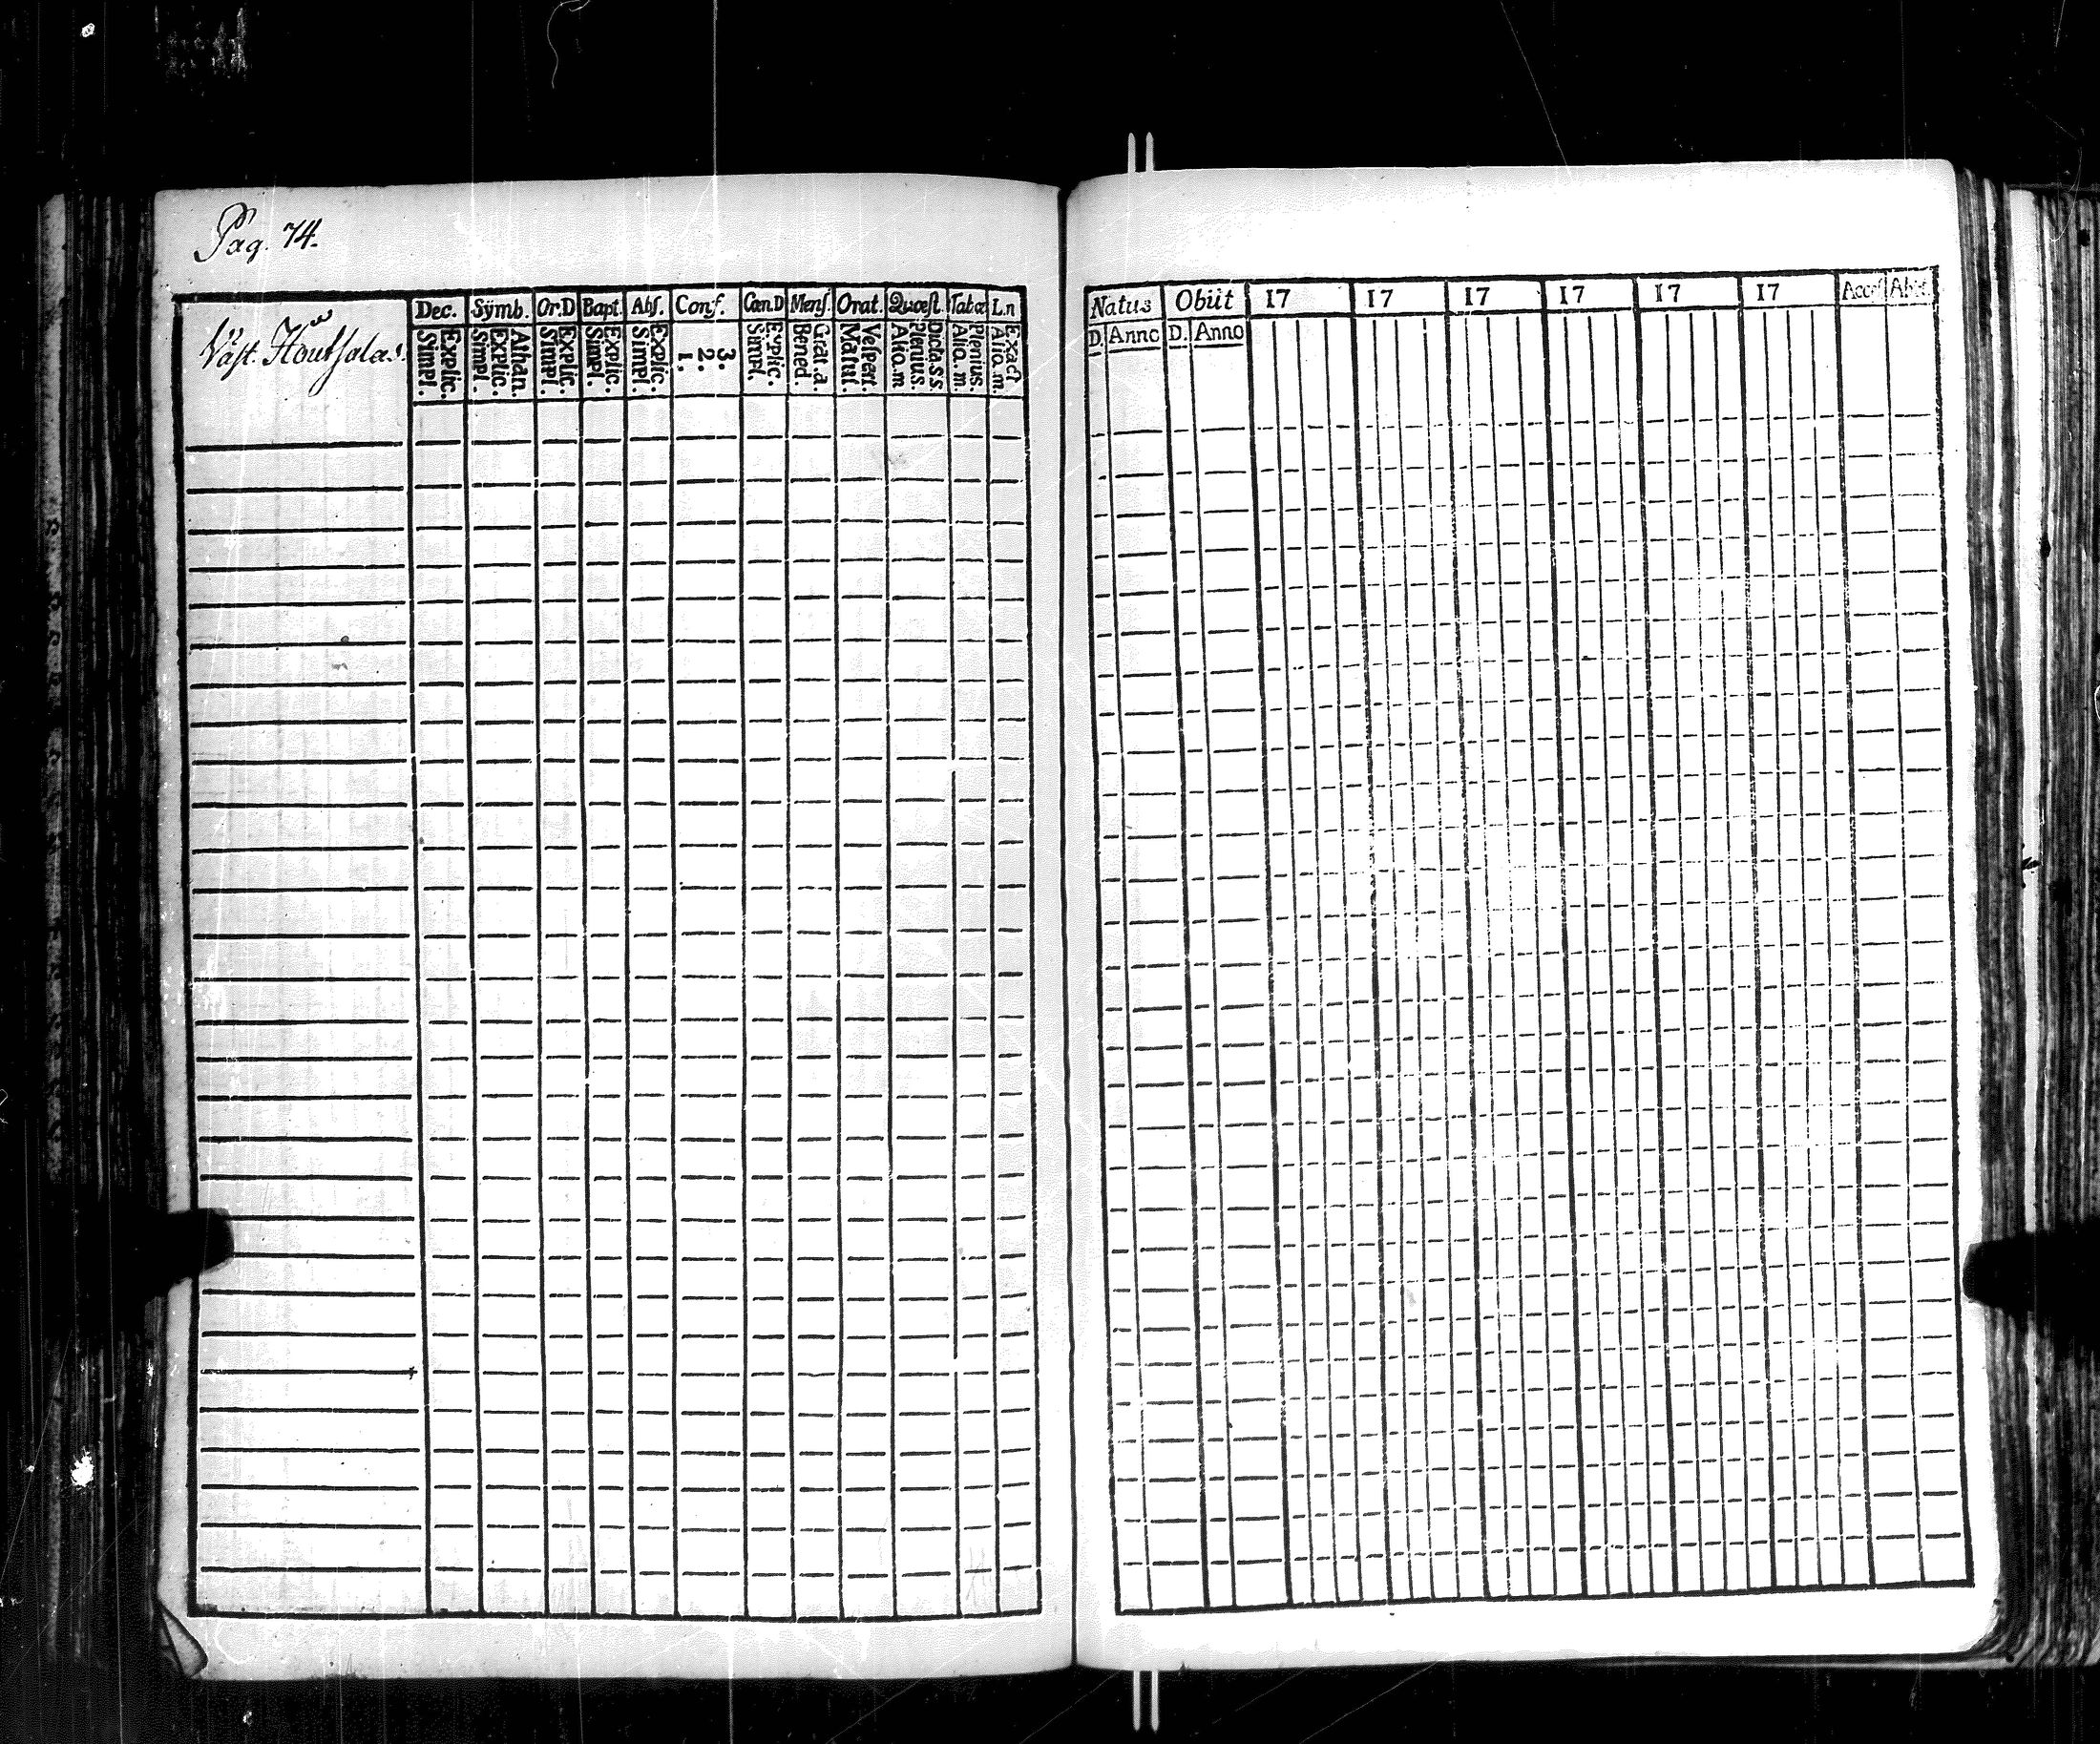 Pag. 74.
Wäst. Houtsalas.
Dec. Sÿmb. Or.D Bapt. Abſ. Conf. Cœn.D Menſ. Orat. Quæſt. Tabœ L.n
Simpl. Explic. Simpl. Explic. Athan. Simpl. Explic. Simpl. Explic. Simpl. Explic. 1. 2. 3. Simpl. Explic. Bened. Grat.a. Matut. Veſpert. Aliq.m Plenius. Dicta.s.s. Aliq.m. Plenius. Aliq.m. Exact
Natus Obiit 17 17 17 17 17 17 Acceſ Abit.
D. Anno D. Anno